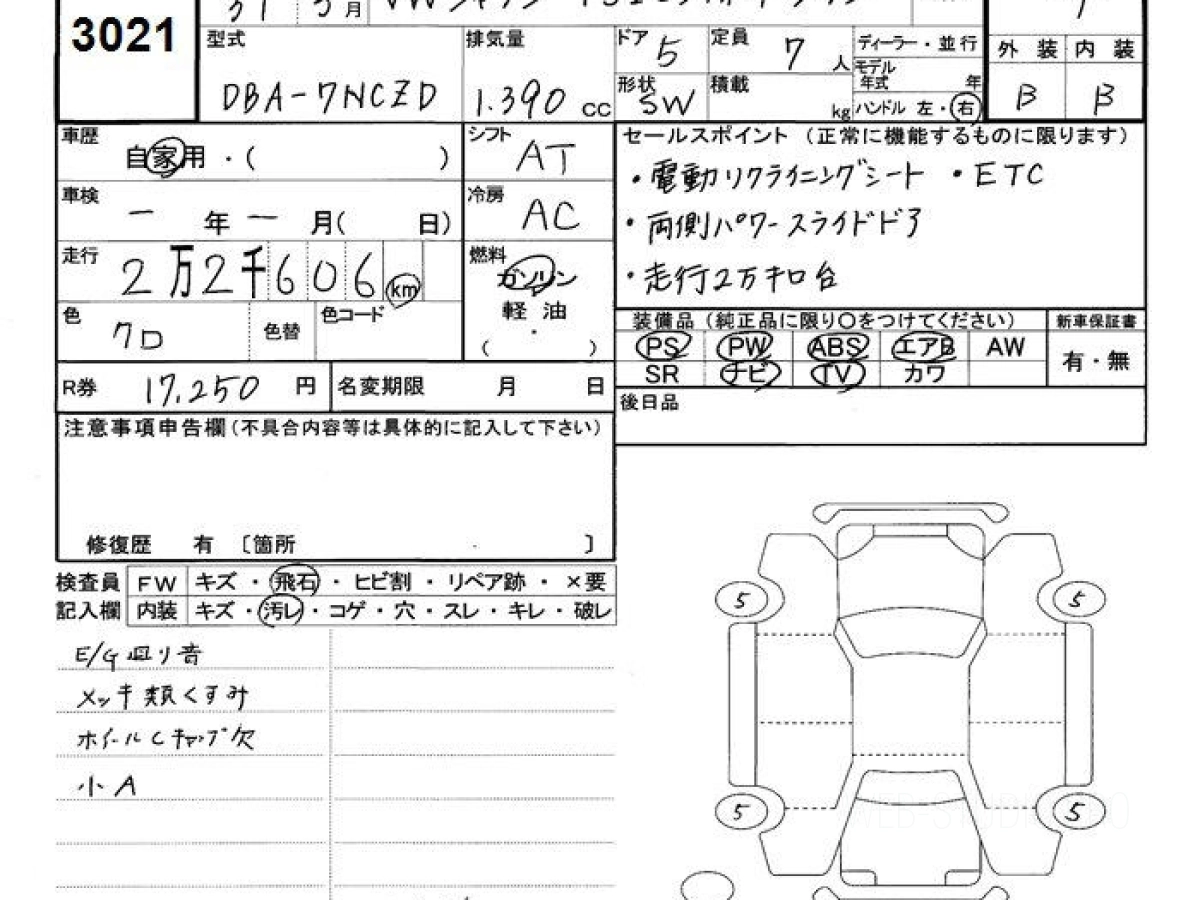 3021
月
型式 DBA-7NCZD
排気量 1.390 cc
ドア 5
定員 7 人
形状 SW
積載 kg
ディーラー・並行
モデル年式 年
ハンドル 左・右
外装 内装
B B
車歴 自家用・( )
シフト AT
車検 一 年 一 月( 日)
冷房 AC
走行 2万2千606 km
燃料 ガソリン
軽油
・
( )
色 クロ 色替 色コード
R券 17,250 円 名変期限 月 日
セールスポイント (正常に機能するものに限ります)
・電動リクライニングシート ・ETC
・両側パワースライドドア
・走行2万キロ台
装備品 (純正品に限り○をつけてください) 新車保証書
PS PW ABS エアB AW 有・無
SR ナビ TV カワ
後日品
注意事項申告欄(不具合内容等は具体的に記入して下さい)
修復歴 有 〔箇所 〕
検査員 FW キズ・飛石・ヒビ割・リペア跡・×要
記入欄 内装 キズ・汚レ・コゲ・穴・スレ・キレ・破レ
E/G廻り音
メッキ類くすみ
ホイールCキャップ欠
小A
5 5
5 5